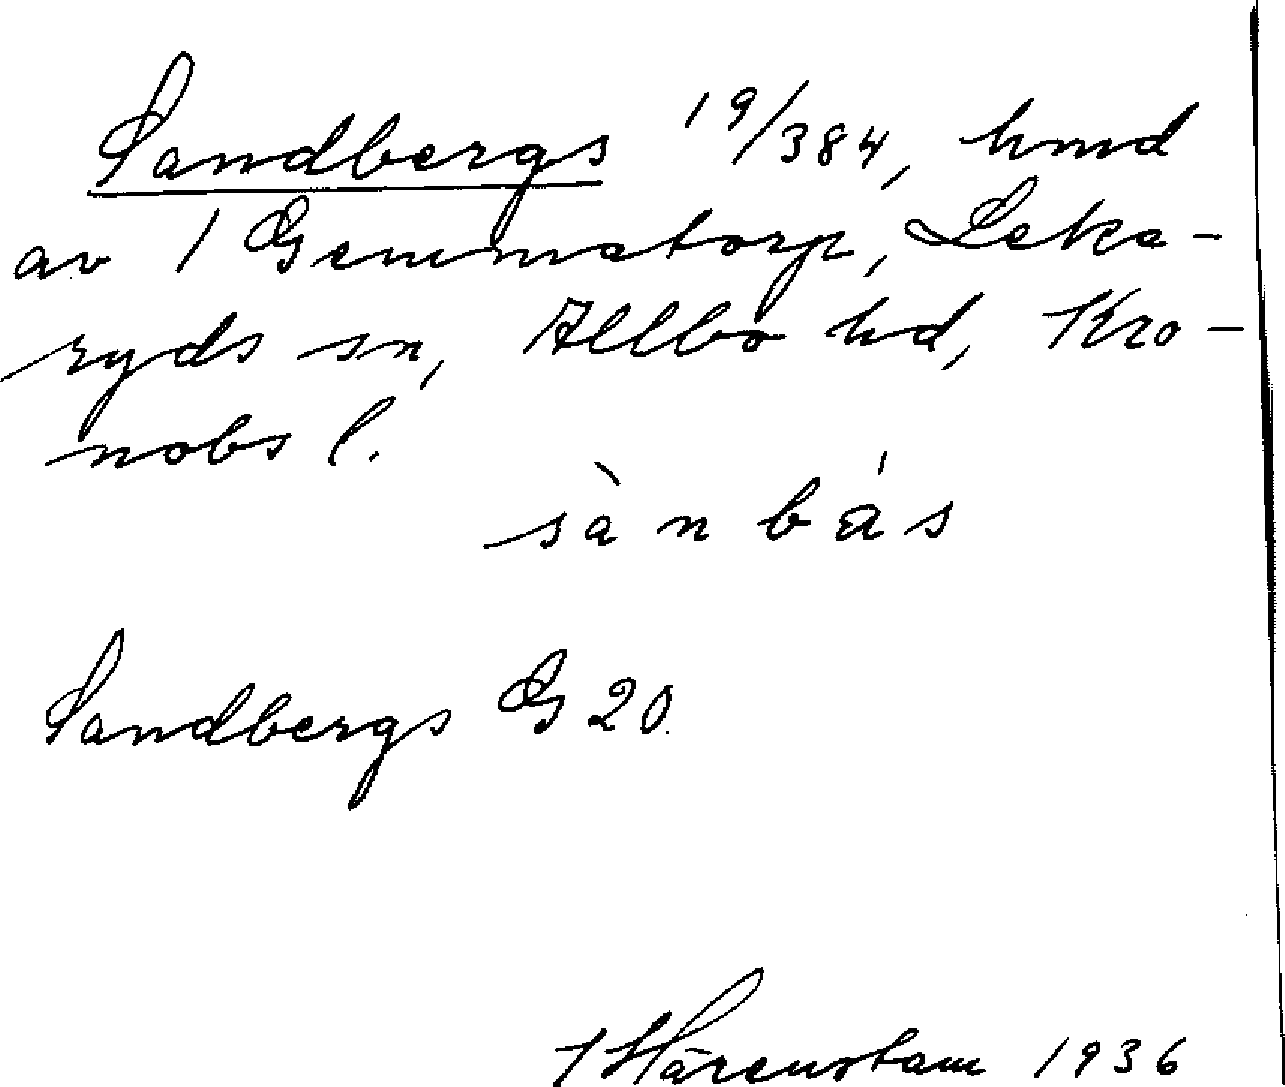 Sandbergs 19/384, hmd
av 1 Gemmatorp, Leka-
ryds sn, Allbo hd, Kro-
nobs l.
sànbás
Sandbergs G 20.
J Härenstam 1936